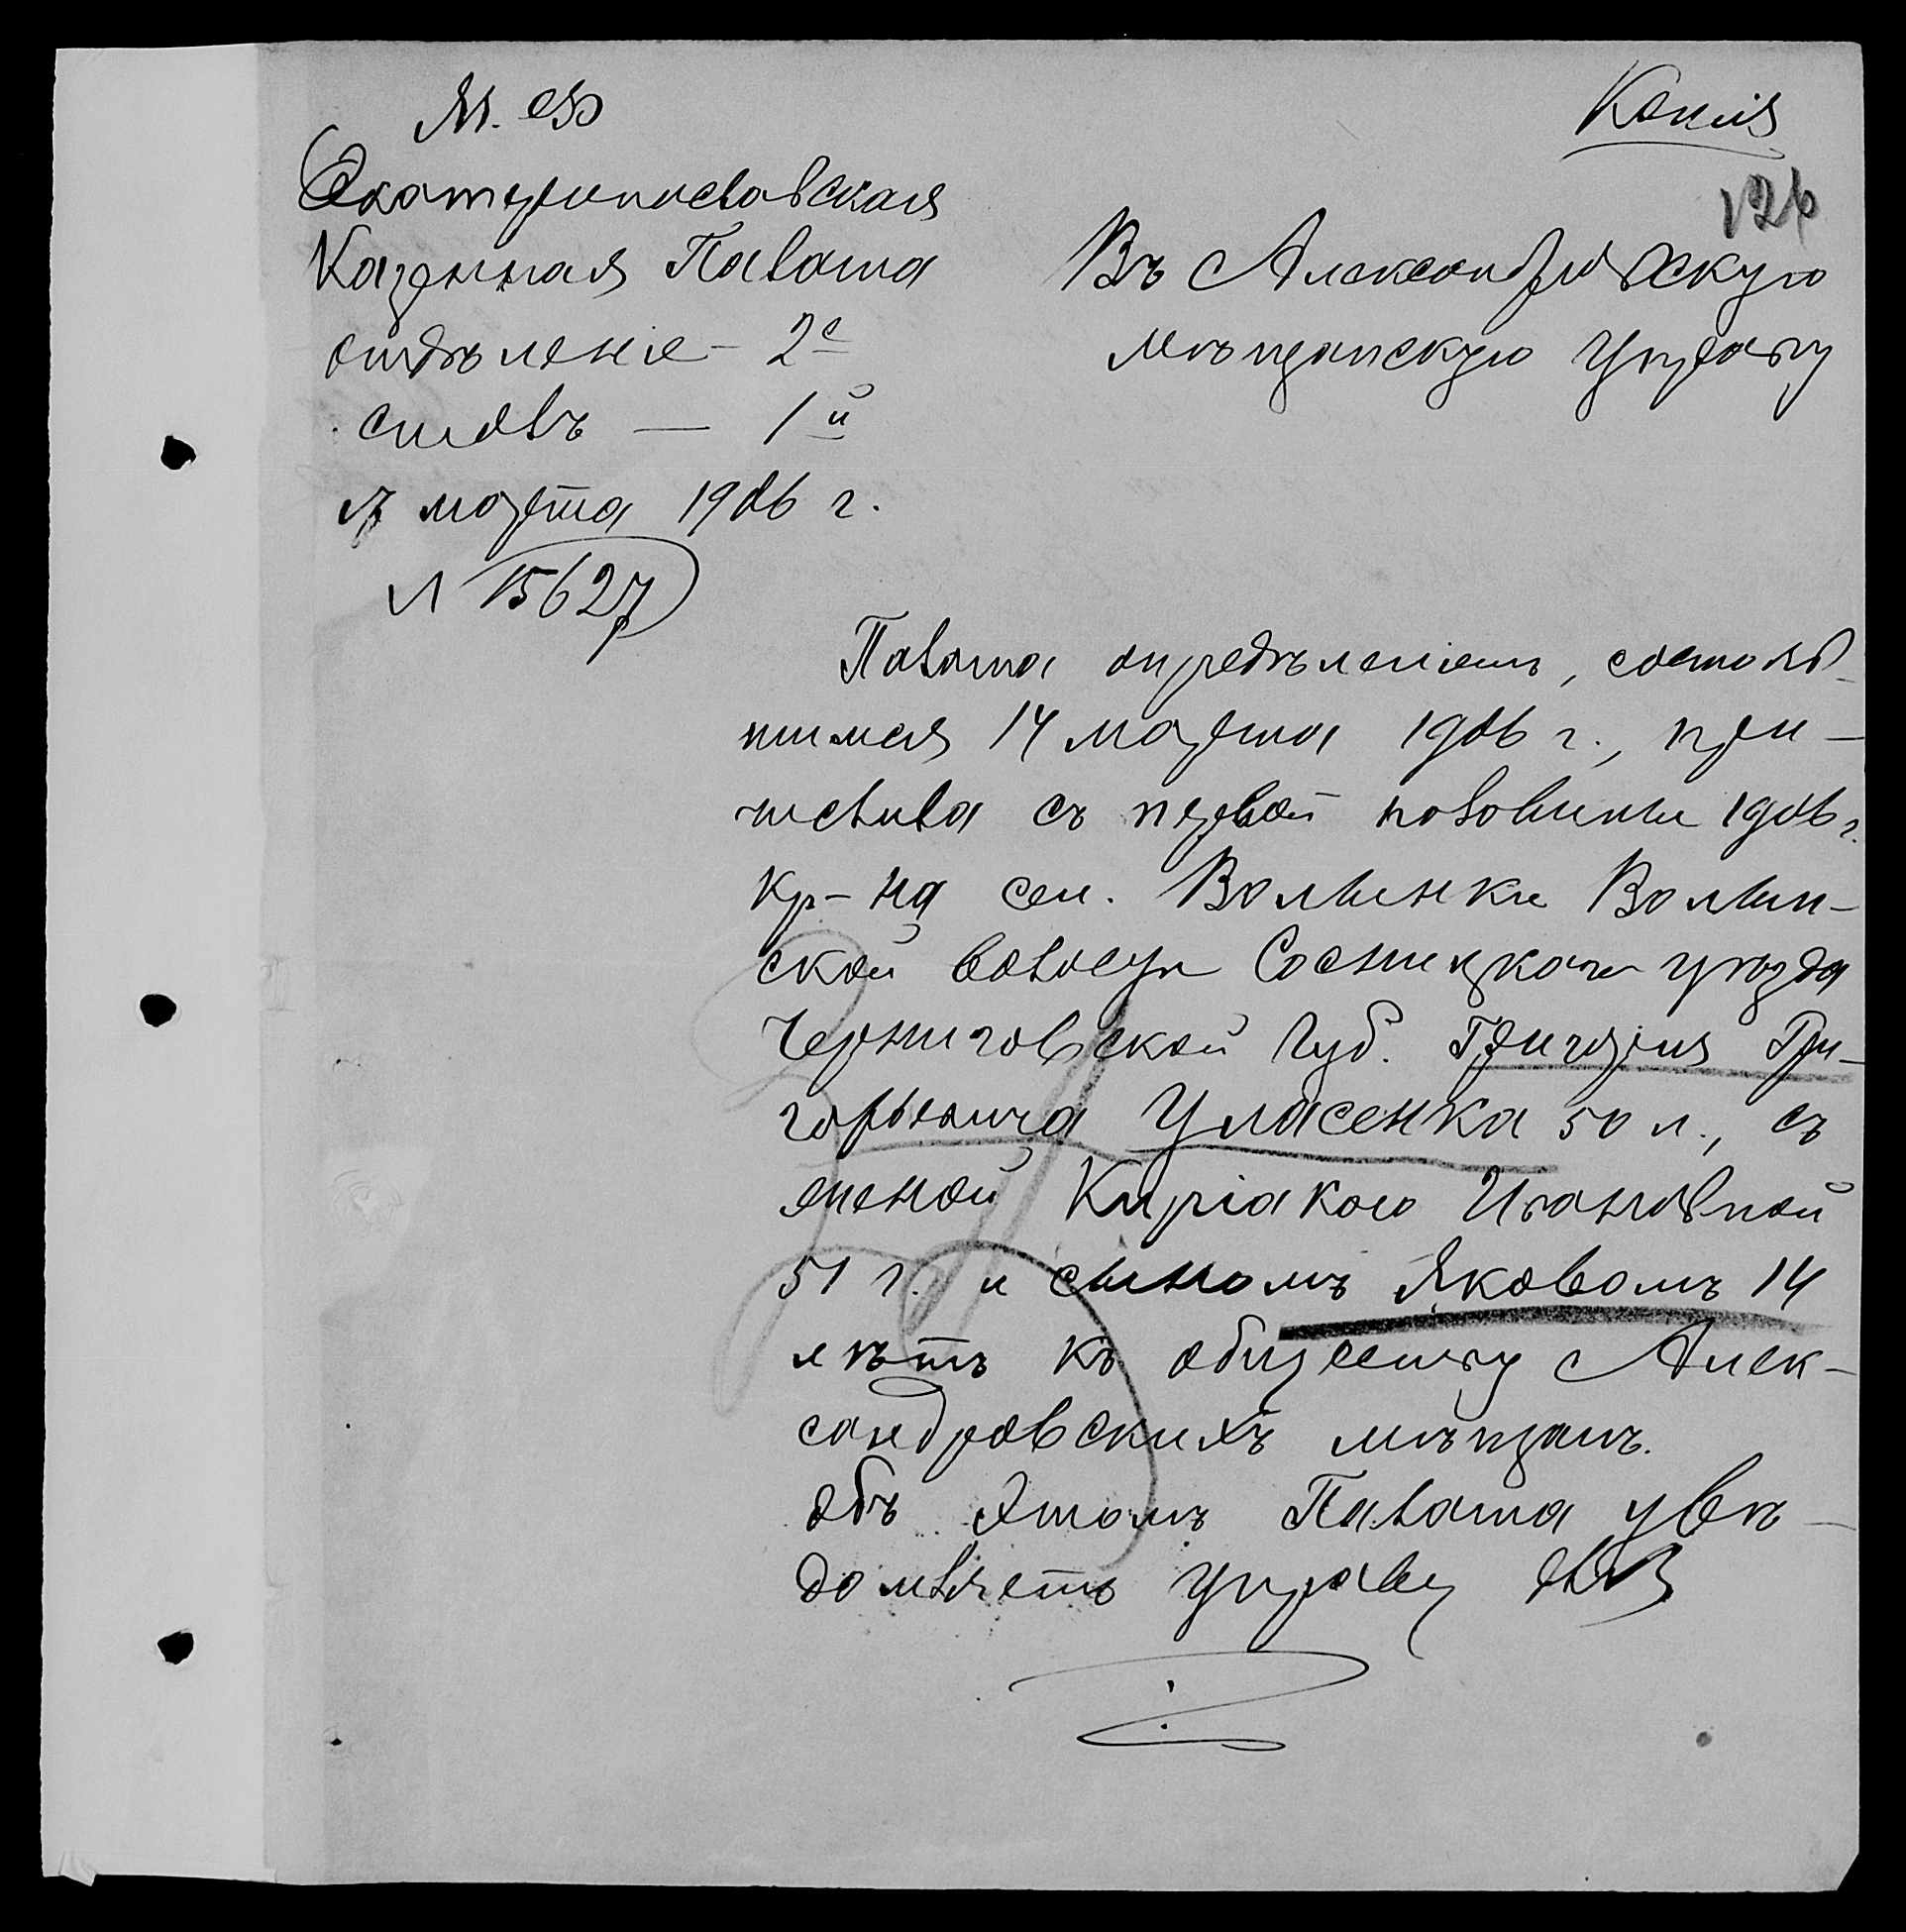 М. Ф.
Копія
126
Екатеринославская
Казенная Палата
отдѣленіе - 2е
столъ — 1й
марта 1906 г.
№ 15627
Въ Александровскую
мѣщанскую Управу
Палата опредѣленіемъ, состояв-
шимся 14 марта 1906 г., при-
числила съ первой половины 1906 г.
кр-на сел. Волынки Волын-
ской волости Сосницкаго уѣзда
Черниговской губ. Григорія Гри-
горьевича Уласенка 50 л., съ
женой Киріакою Ивановной
51 г. и сыномъ Яковомъ 14
лѣтъ къ обществу Алек-
сандровскихъ мѣщанъ.
Объ этомъ Палата увѣ-
домляетъ Управу